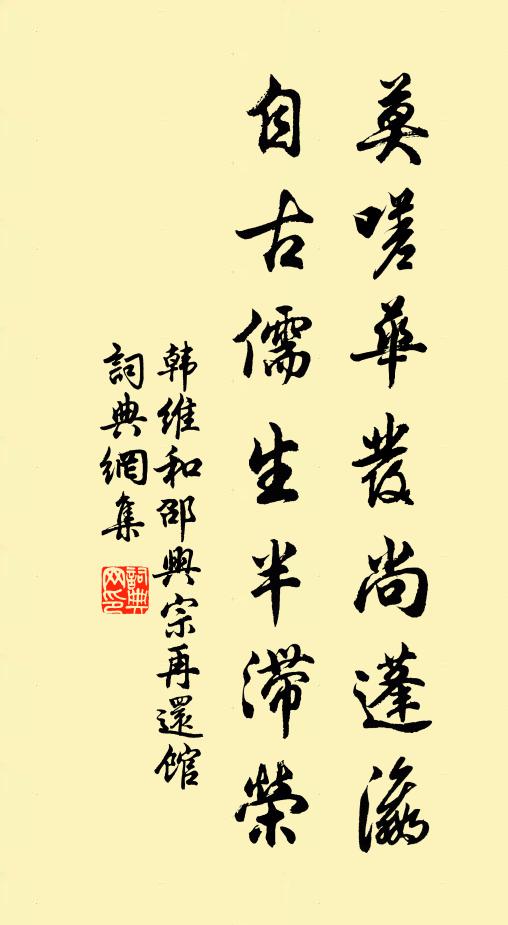 莫嗟華發尚蓬瀛
自古儒生半滯榮
韩維和邵興宗再還館
詞典網集
詞典
网印